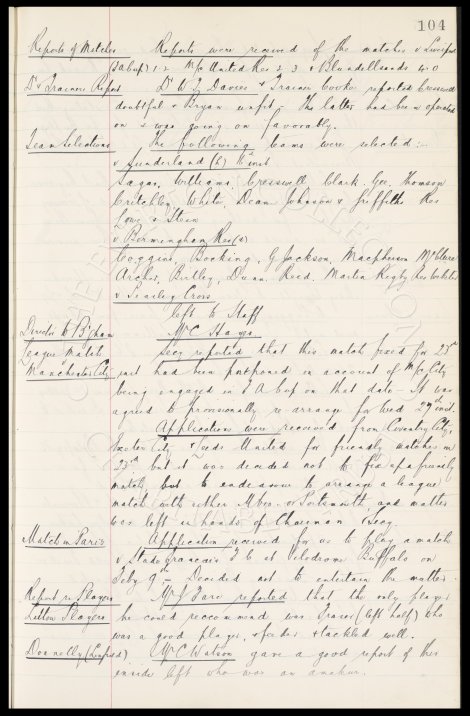 104
Reports of Matches Reports were received of the matches v Liverpool
(FA Cup) 1-2 M/c United Res 2-3 & Blundellsands 4-0
Dr & Trainers Report Dr W J Davies & Trainer Cooke reported Cresswell
doubtful & Bryan unfit. The latter had been operated
on & was going on favorably.
Team Selections The following teams were selected:-
v Sunderland (h) 16 inst
Sagar, Williams, Cresswell Clark, Gee, Thomson
Critchley, White, Dean Johnson & Griffiths Res
Low & Stein
v Birmingham Res (a)
Coggins, Bocking, G Jackson, Macpherson McClure
Archer, Birtley, Dunn, Reed, Martin Rigby Res Webster
v
Left to Staff
Director to B'ham Mr C
League Match Secy reported that this match fixed for 23rd
Manchester City inst had been postponed on account of M/c City
being engaged in FA Cup on that date. It was
agreed to provisionally re-arrange for Wed 27th inst.
Applications were received from Coventry City,
Exeter City & Leeds United for friendly matches on
23rd but it was decided not to fix up a friendly
match but to endeavour to arrange a league
match with either or Portsmouth, and matter
was left in hands of Chairman & Secy.
Match in Paris Application received for us to play a match
v Stade Francais F.C. at Velodrome Buffalo on
Feby 9th Decided not to entertain the matter.
Report re Players Mr J Fare reported that the only player
Luton Players he could recommend was Fraser (left half) who
was a good player, & feeder & tackled well.
Donnelly (Linfield) Mr C Watson gave a good report of this
inside left who was an amateur.